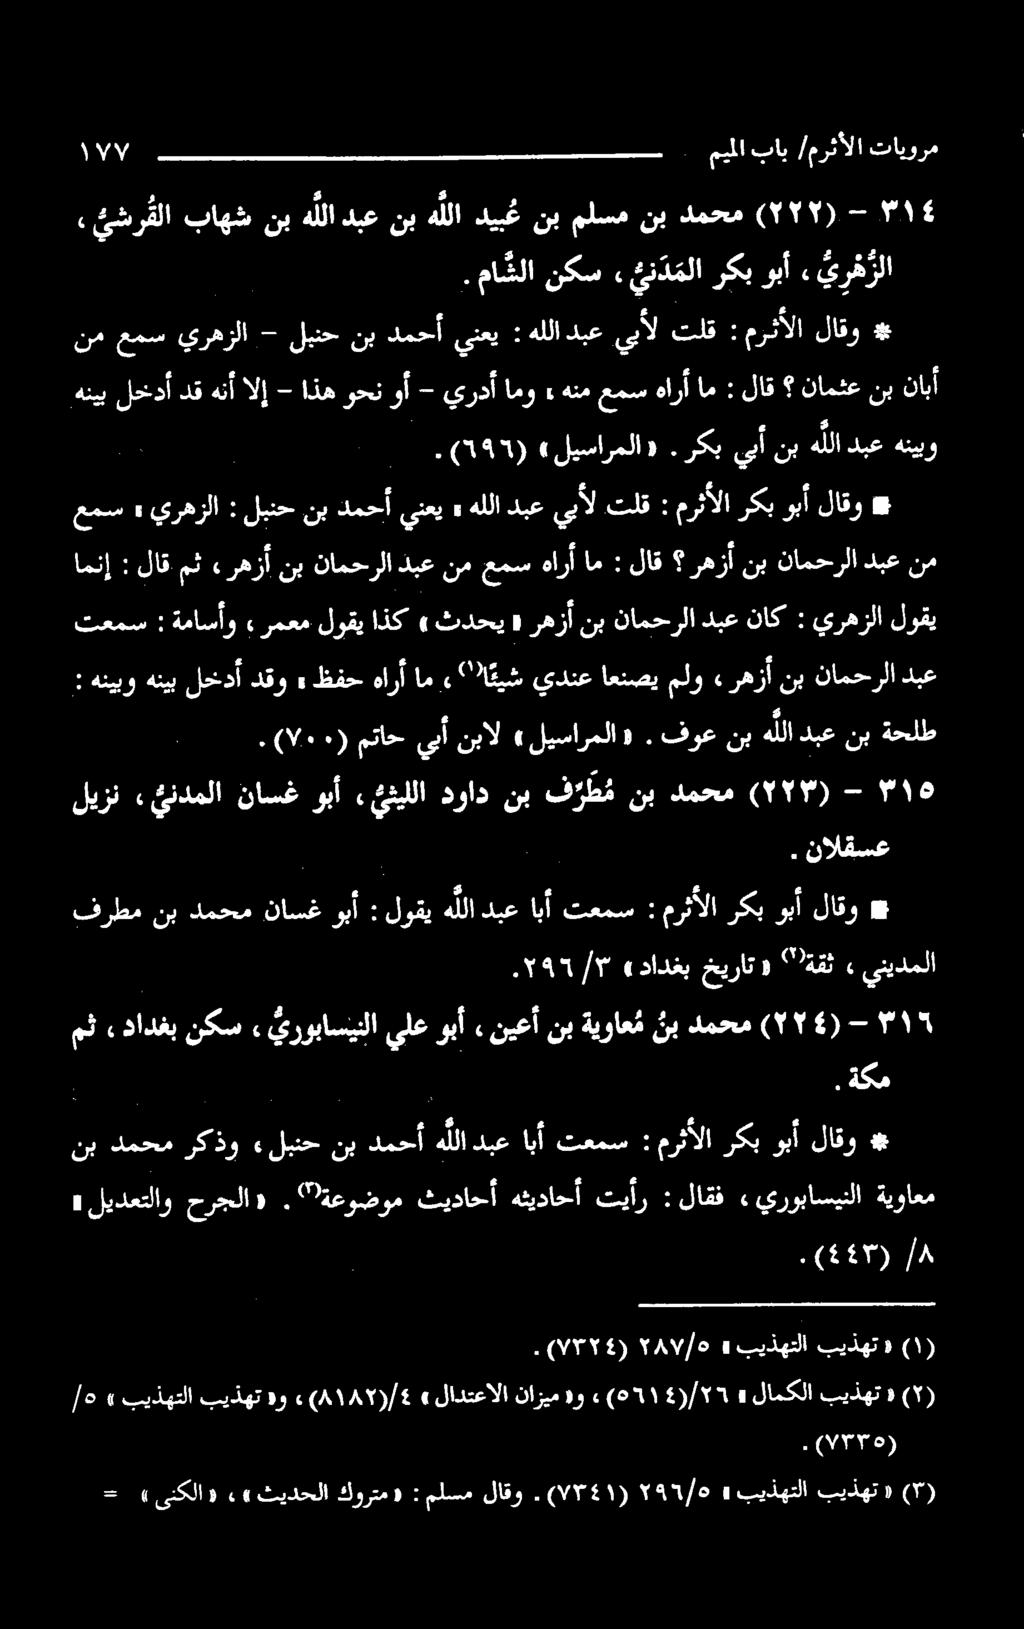 مرويات الأثرم/ باب الميم ١٧٧
٣١٤ - (٢٢٢) محمد بن مسلم بن عُبيد اللَّه بن عبد اللَّه بن شهاب القُرشيُّ ،
الزُّهْرِيُّ ، أبو بكر المَدَنيُّ ، سكن الشَّام .
* وقال الأثرم : قلت لأبي عبد الله : يعني أحمد بن حنبل - الزهري سمع من
أبان بن عثمان ؟ قال : ما أراه سمع منه ، وما أدري - أو نحو هذا - إلا أنه قد أدخل بينه
وبينه عبد اللَّه بن أبي بكر . «المراسيل» (٦٩٦) .
■ وقال أبو بكر الأثرم : قلت لأبي عبد الله ، يعني أحمد بن حنبل : الزهري ، سمع
من عبد الرحمان بن أزهر ؟ قال : ما أراه سمع من عبد الرحمان بن أزهر ، ثم قال : إنما
يقول الزهري : كان عبد الرحمان بن أزهر ، يحدث ، كذا يقول معمر ، وأسامة : سمعت
عبد الرحمان بن أزهر ، ولم يصنعا عندي شيئا(١) ، ما أراه حفظ ، وقد أدخل بينه وبينه :
طلحة بن عبد اللَّه بن عوف . «المراسيل» لابن أبي حاتم (٧٠٠) .
٣١٥ - (٢٢٣) محمد بن مُطَرِّف بن داود الليثيُّ ، أبو غسان المدنيُّ ، نزيل
عسقلان .
■ وقال أبو بكر الأثرم : سمعت أبا عبد اللَّه يقول : أبو غسان محمد بن مطرف
المديني ، ثقة(٢) «تاريخ بغداد» ٣/ ٢٩٦.
٣١٦ - (٢٢٤) محمد بنُ مُعاوية بن أعين ، أبو علي النيسابوريُّ ، سكن بغداد ، ثم
مكة .
* وقال أبو بكر الأثرم : سمعت أبا عبد اللَّه أحمد بن حنبل ، وذكر محمد بن
معاوية النيسابوري ، فقال : رأيت أحاديثه أحاديث موضوعة(٣) . «الجرح والتعديل»
٨/ (٤٤٣) .
(١) «تهذيب التهذيب» ٥/ ٢٨٧ (٧٣٢٤) .
(٢) «تهذيب الكمال» ٢٦/(٥٦١٤) ، و«ميزان الاعتدال» ٤/(٨١٨٢) ، و«تهذيب التهذيب» ٥/
(٧٣٣٥) .
(٣) «تهذيب التهذيب» ٥/ ٢٩٦ (٧٣٤١) . وقال مسلم : «متروك الحديث» ، «الكنى» =